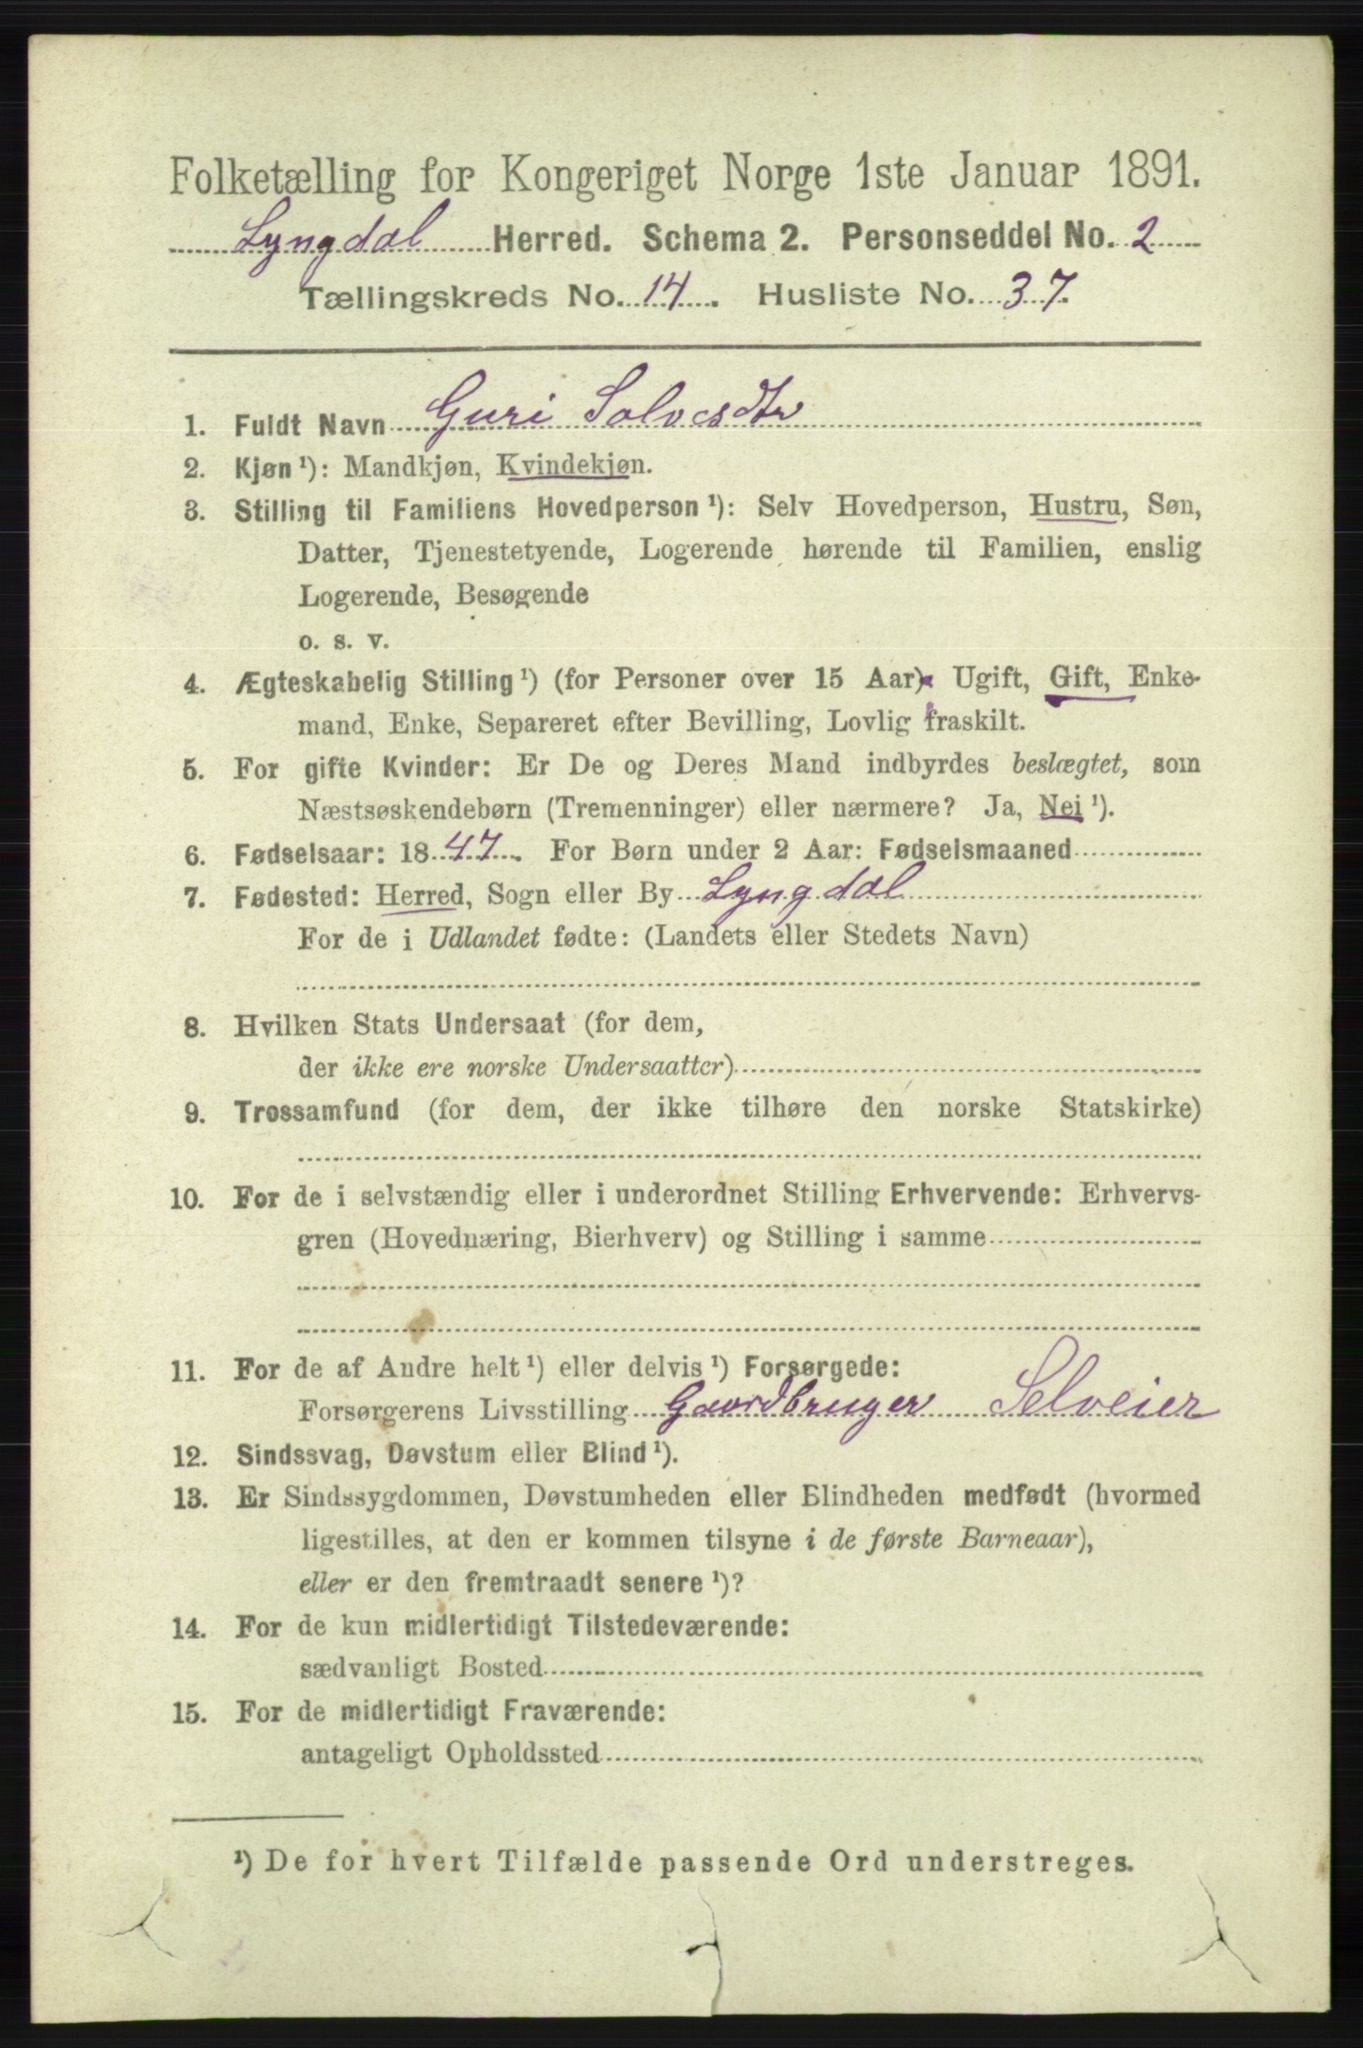 Folketælling for Kongeriget Norge 1ste Januar 1891.
Lyngdal Herred. Schema 2. Personseddel No. 2
Tællingskreds No. 14. Husliste No. 37.
1. Fuldt Navn Guri Solvesdtr
2. Kjøn ¹): Mandkjøn, Kvindekjøn.
3. Stilling til Familiens Hovedperson ¹): Selv Hovedperson, Hustru, Søn,
Datter, Tjenestetyende, Logerende hørende til Familien, enslig
Logerende, Besøgende
o. s. v.
4. Ægteskabelig Stilling ¹) (for Personer over 15 Aar): Ugift, Gift, Enke-
mand, Enke, Separeret efter Bevilling, Lovlig fraskilt.
5. For gifte Kvinder: Er De og Deres Mand indbyrdes beslægtet, som
Næstsøskendebørn (Tremenninger) eller nærmere? Ja, Nei ¹).
6. Fødselsaar: 1847. For Børn under 2 Aar: Fødselsmaaned
7. Fødested: Herred, Sogn eller By Lyngdal
For de i Udlandet fødte: (Landets eller Stedets Navn)
8. Hvilken Stats Undersaat (for dem,
der ikke ere norske Undersaatter)
9. Trossamfund (for dem, der ikke tilhøre den norske Statskirke)
10. For de i selvstændig eller i underordnet Stilling Erhvervende: Erhvervs-
gren (Hovednæring, Bierhverv) og Stilling i samme
11. For de af Andre helt ¹) eller delvis ¹) Forsørgede:
Forsørgerens Livsstilling Gaardbruger Selveier
12. Sindssvag, Døvstum eller Blind ¹).
13. Er Sindssygdommen, Døvstumheden eller Blindheden medfødt (hvormed
ligestilles, at den er kommen tilsyne i de første Barneaar),
eller er den fremtraadt senere ¹)?
14. For de kun midlertidigt Tilstedeværende:
sædvanligt Bosted
15. For de midlertidigt Fraværende:
antageligt Opholdssted
¹) De for hvert Tilfælde passende Ord understreges.